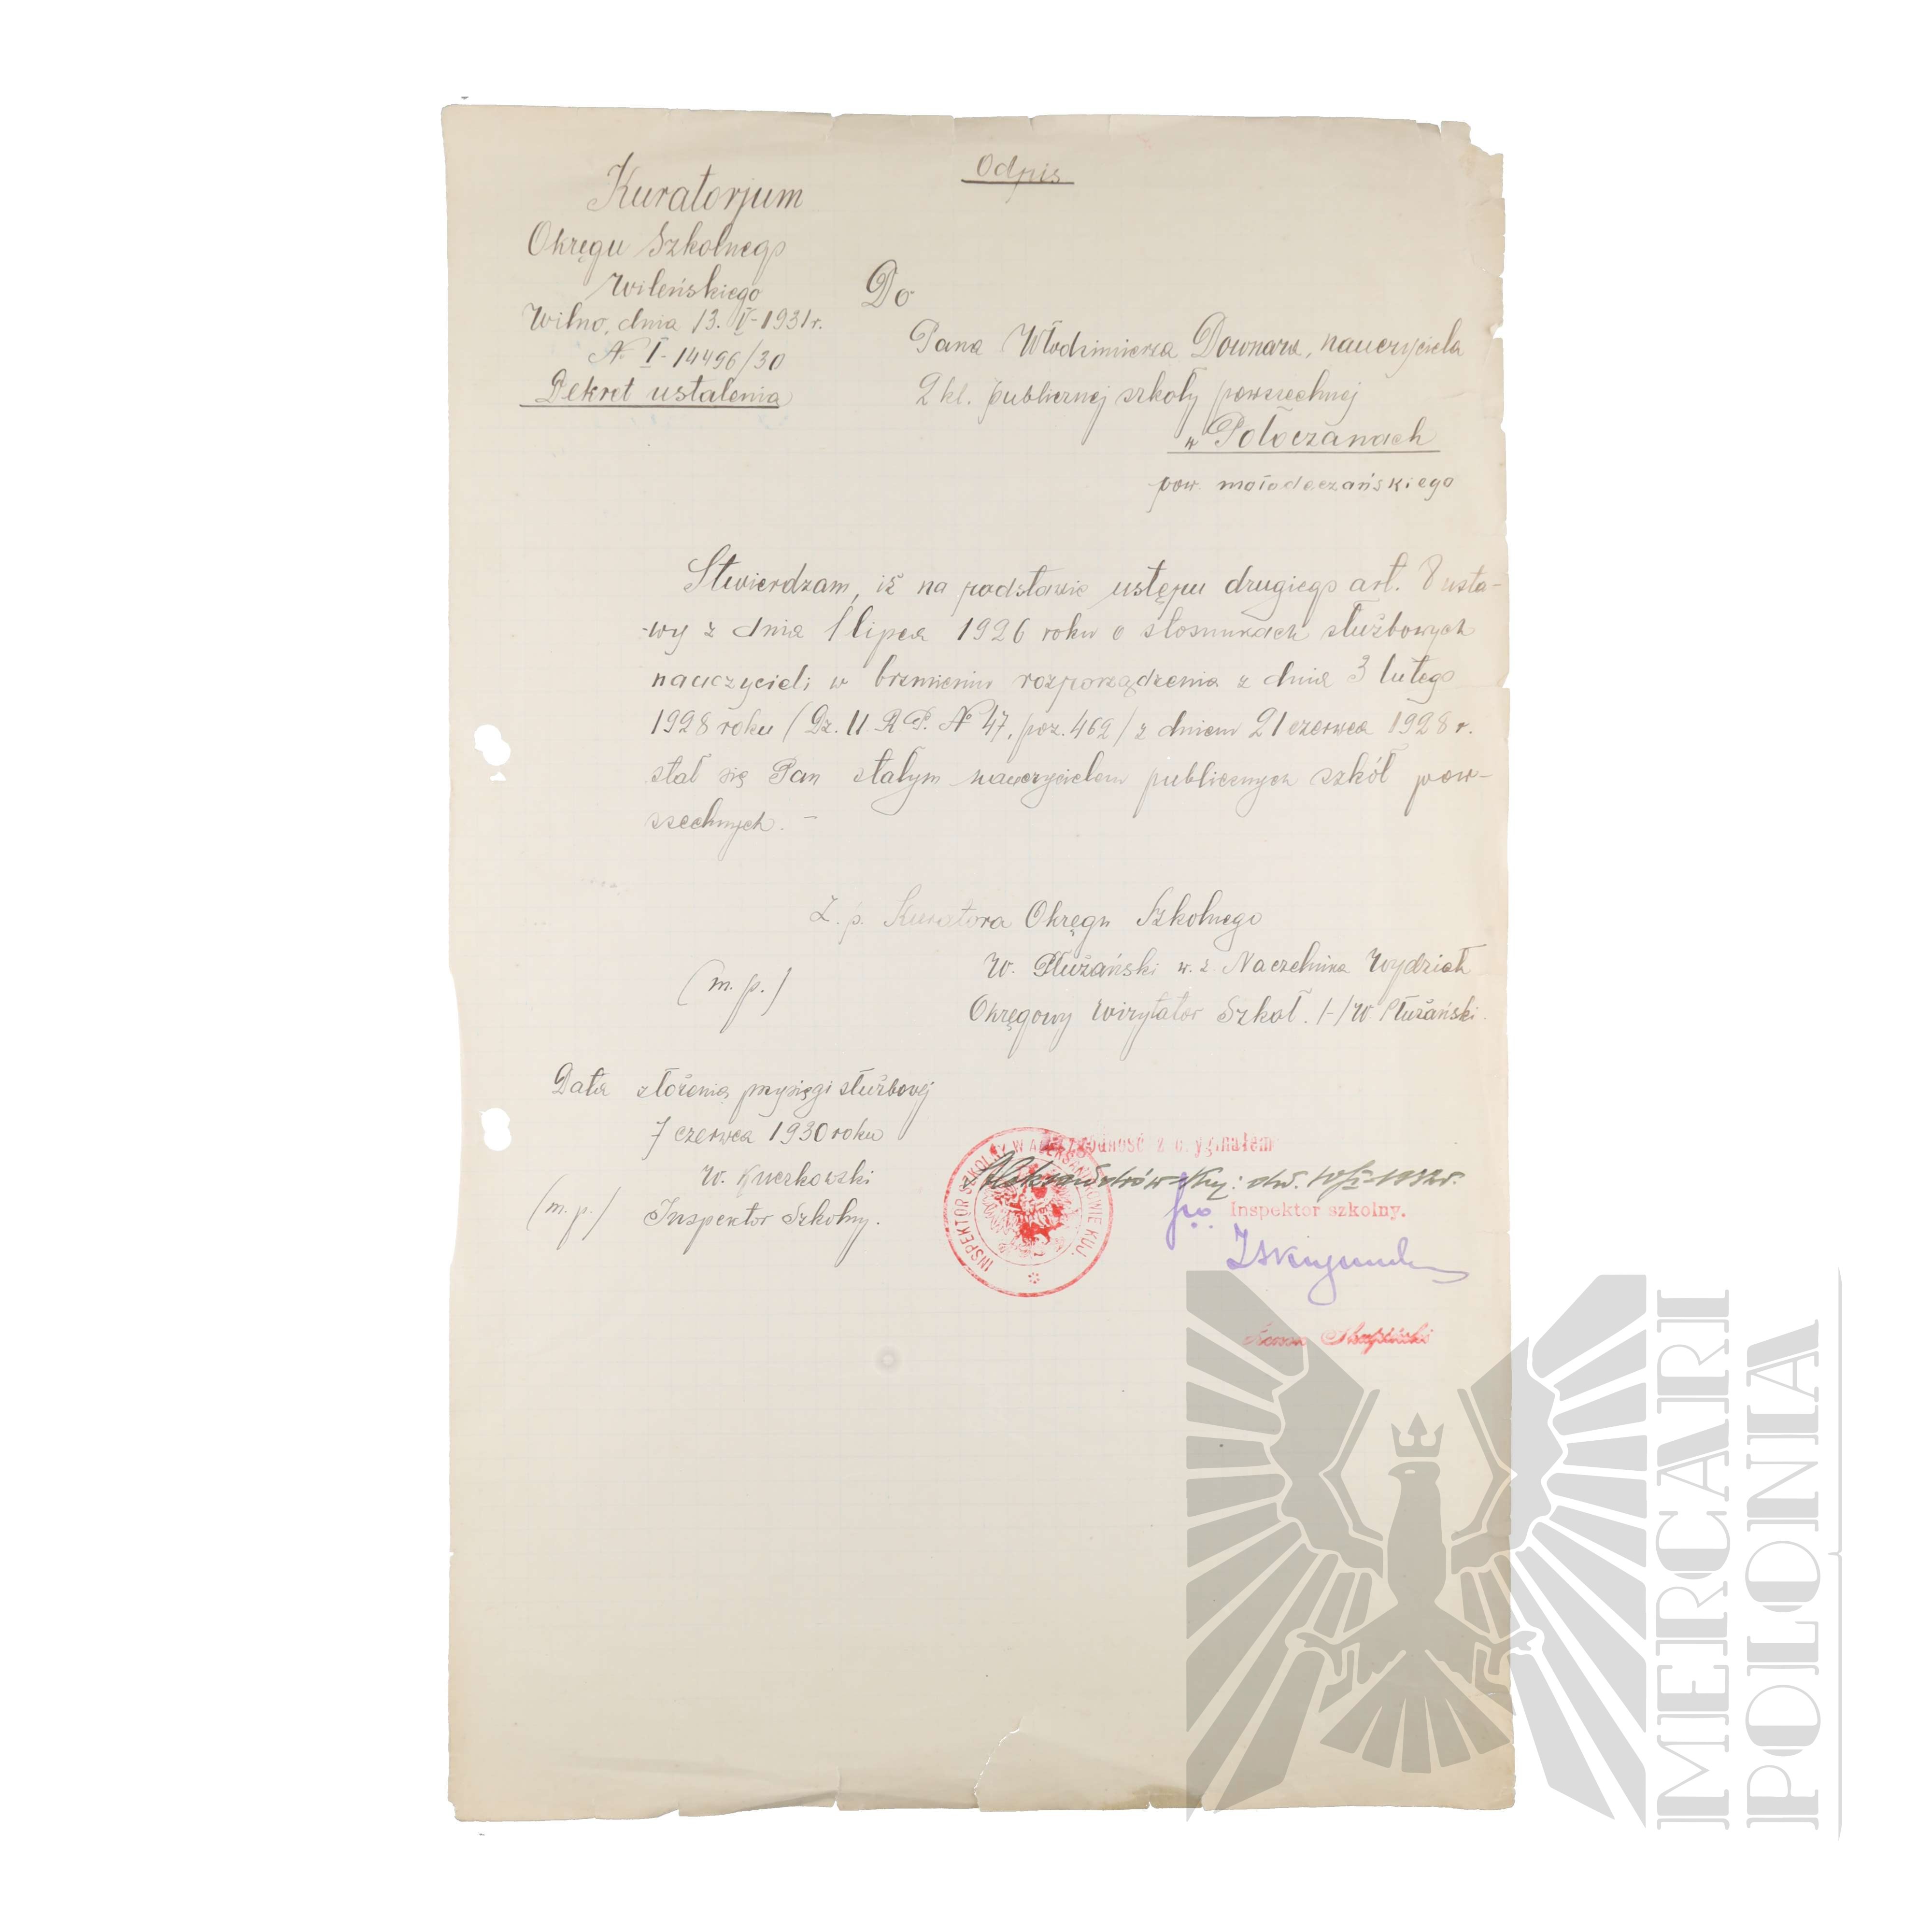 Odpis
Kuratorjum
Okręgu Szkolnego
Wileńskiego
Wilno, dnia 13. V-1931 r.
№ I-14496/30
Dekret ustalenia
Do
Pana Włodzimierza Downara, nauczyciela
2 kl. publicznej szkoły powszechnej
w Połoczanach
pow. mołodeczańskiego
Stwierdzam, iż na podstawie ustępu drugiego art. 8 usta-
-wy z dnia 1 lipca 1926 roku o stosunkach służbowych
nauczycieli w brzmieniu rozporządzenia z dnia 3 lutego
1928 roku (Dz. U R P. № 47, poz. 462/ z dniem 21 czerwca 1928 r.
stał się Pan stałym nauczycielem publicznych szkół pow-
szechnych. -
Z. p. Kuratora Okręgu Szkolnego
W. Płużański w. z. Naczelnika Wydział
(m. p.)
Okręgowy Wizytator Szkół. /-/ W Płużański
Data złożenia przysięgi służbowej
7 czerwca 1930 roku
W. Kuczkowski
(m. p.) Inspektor Szkolny.
zgodność z oryginałem
Aleksandrów Kuj: dn.
INSPEKTOR SZKOLNY W ALEKSANDROWIE KUJ.
po. Inspektor szkolny.
MERCARI
POLONIA